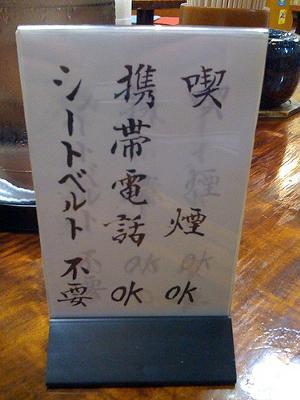 喫煙 OK
携帯電話 OK
シートベルト 不要